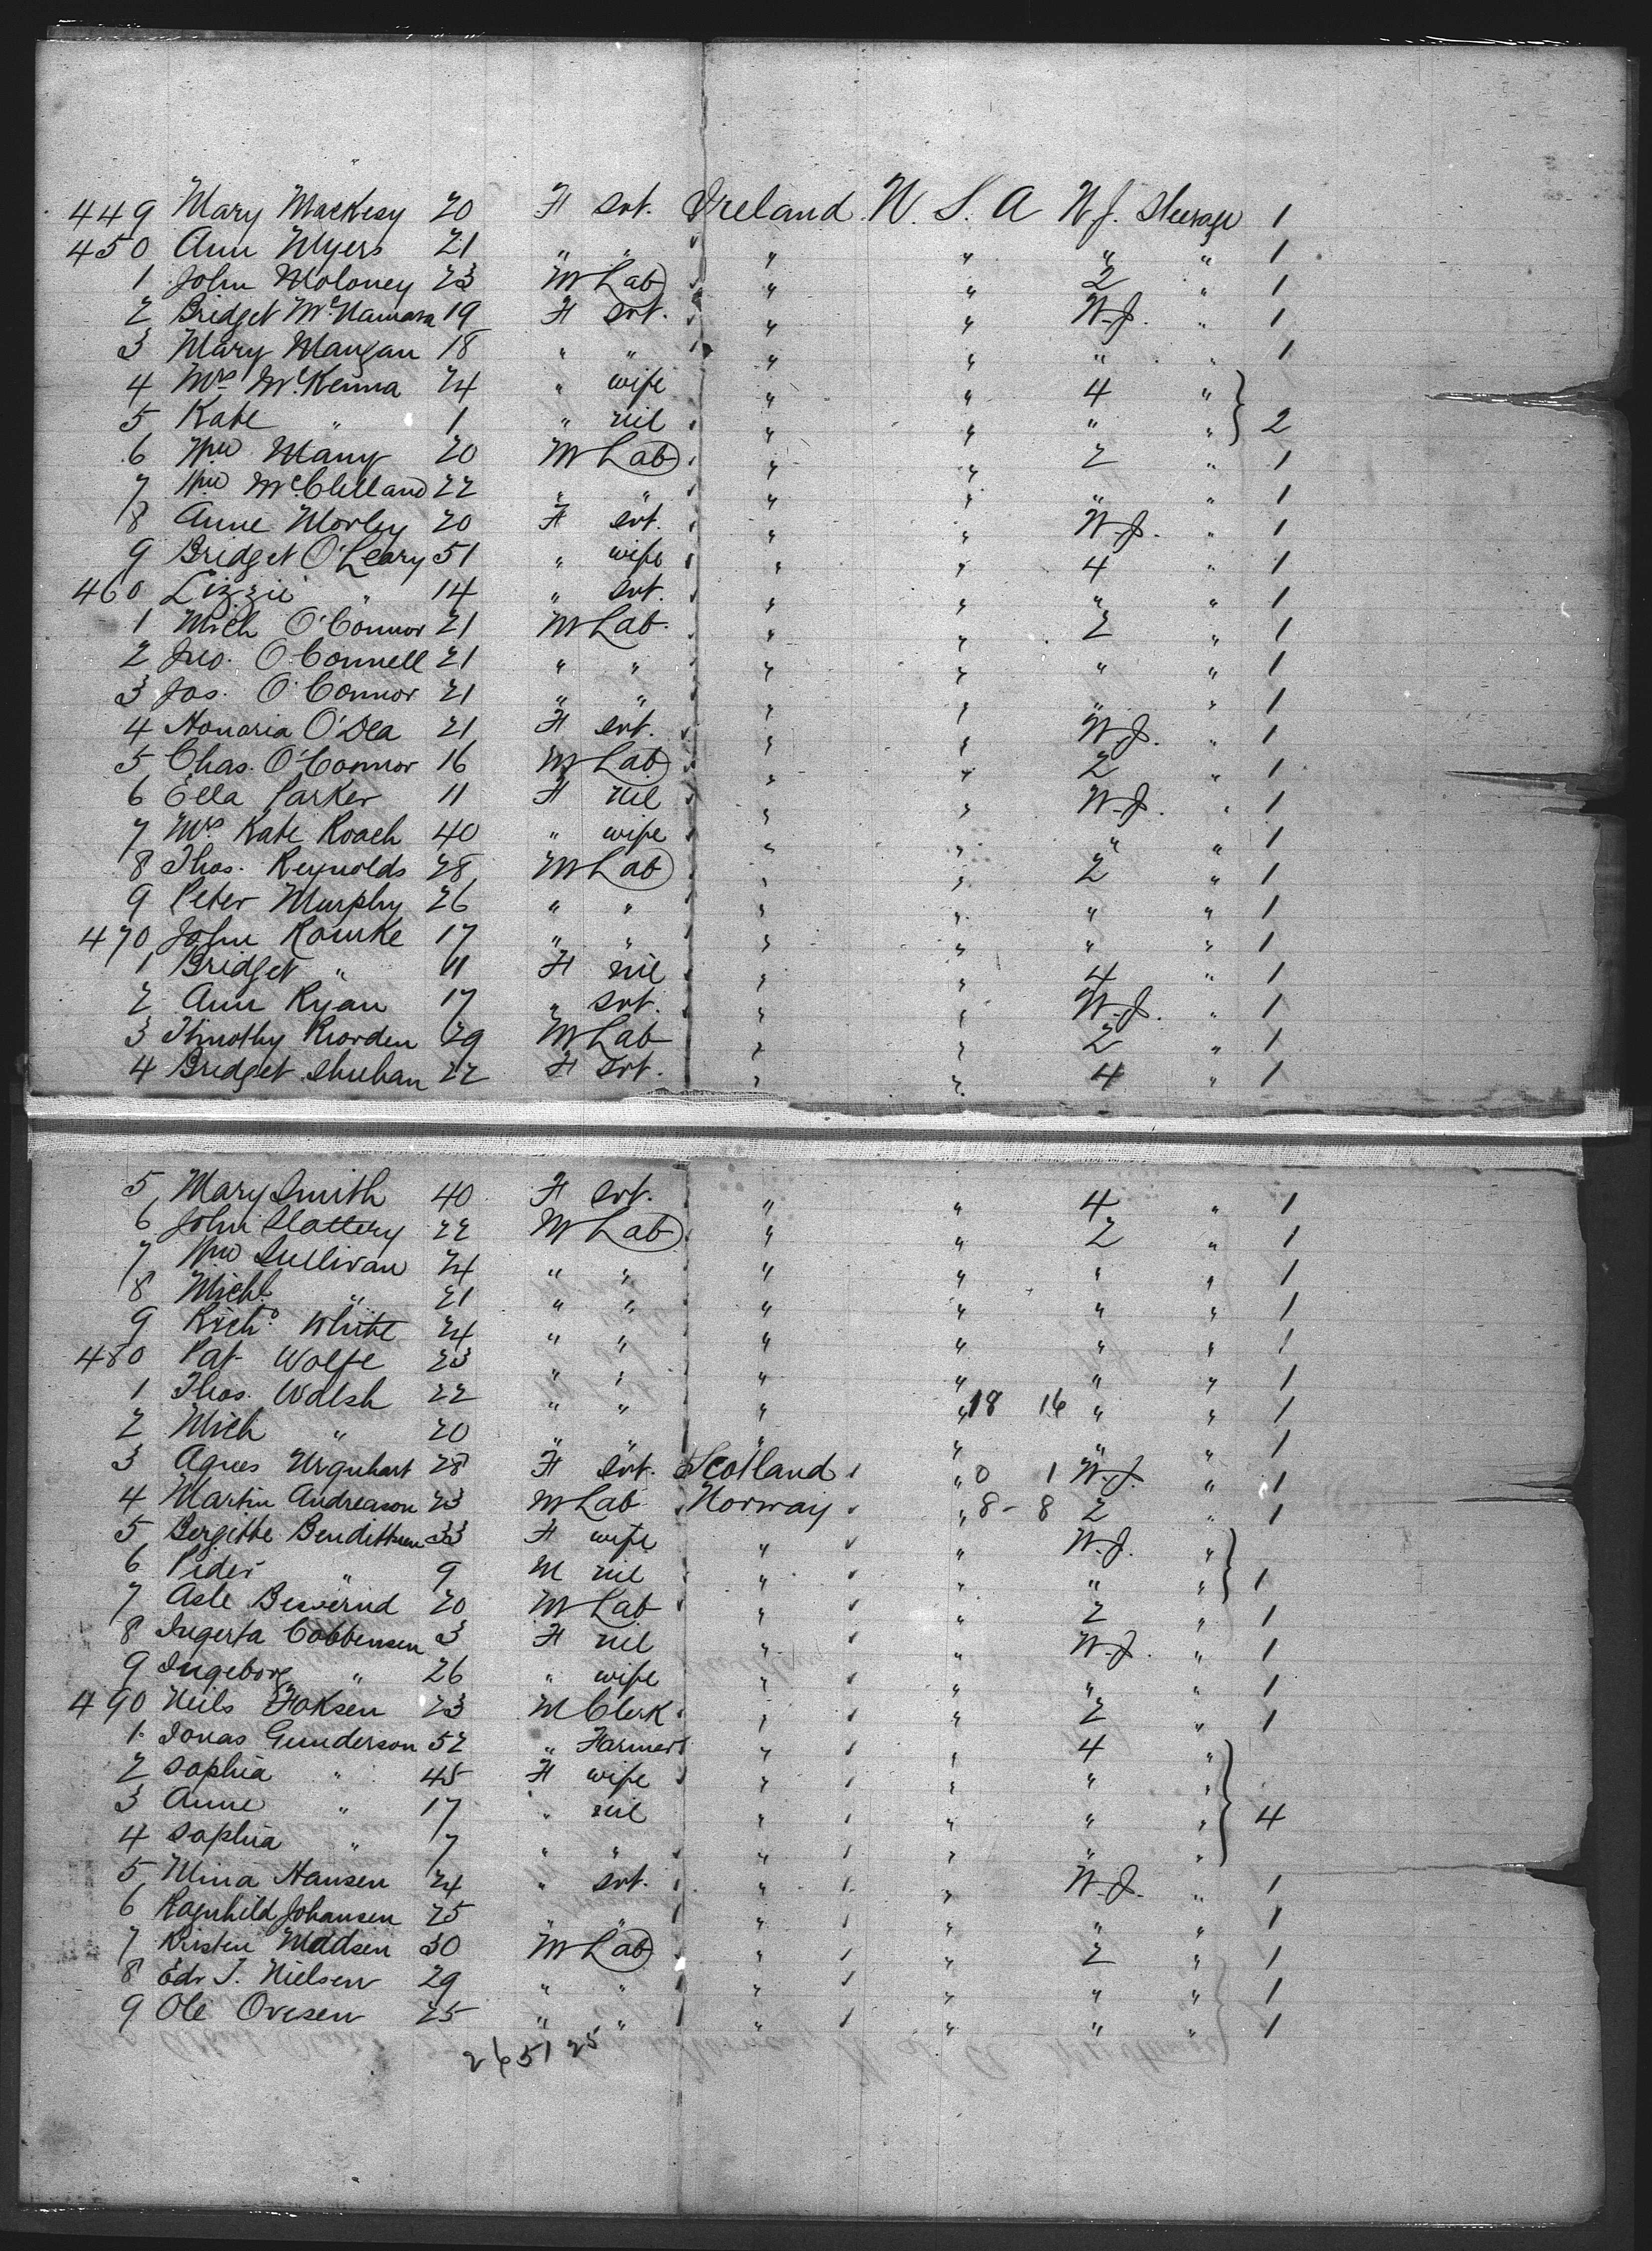 449 Mary Mackesy 20 F Svt. Ireland U. S. A W.J. Steerage 1
450 Ann Myers 21 " " " " " " 1
1 John Moloney 23 M Lab " " 2 " 1
2 Bridget McNamara 19 F Svt. " " W.J. " 1
3 Mary Mangan 18 " " " " " " 1
4 Mrs McKenna 24 " wife " " 4 "
5 Kate " 1 " nil " " " " 2
6 Wm Many 20 M Lab " " 2 " 1
7 Wm McClelland 22 " " " " " " 1
8 Anne Morley 20 F svt. " " W.J. " 1
9 Bridget O'Leary 51 " wife " " 4 " 1
460 Lizzie " 14 " svt. " " " " 1
1 Mich O'Connor 21 M Lab. " " 2 " 1
2 Jno. O'Connell 21 " " " " " " 1
3 Jas. O'Connor 21 " " " " " " 1
4 Honoria O'Dea 21 F svt. " " W.J. " 1
5 Chas. O'Connor 16 M Lab " " 2 " 1
6 Ella Parker 11 F nil " " W.J. " 1
7 Mrs Kate Roach 40 " wife " " " " 1
8 Thos. Reynolds 28 M Lab " " 2 " 1
9 Peter Murphy 26 " " " " " " 1
470 John Rourke 17 " " " " " " 1
1 Bridget " 11 F nil " " 4 " 1
2 Ann Ryan 17 " svt. " " W.J. " 1
3 Timothy Riorden 29 M Lab " " 2 " 1
4 Bridget Shuhan 22 F Svt. " " 4 " 1
5 Mary Smith 40 F Svt. " " 4 " 1
6 John Slattery 22 M Lab " " 2 " 1
7 Wm Sullivan 24 " " " " " " 1
8 Michl " 21 " " " " " " 1
9 Richd White 24 " " " " " " 1
480 Pat Wolfe 23 " " " " " " 1
1 Thos. Walsh 22 " " " " 18 16 " " 1
2 Mich " 20 " " " " " " 1
3 Agnes Urquhart 28 F Svt. Scotland " 0 1 W.J. " 1
4 Martin Andreason 23 M Lab Norway " 8 - 8 2 " 1
5 Bergitte Bendittsen 33 F wife " " W.J. "
6 Peder " 9 M nil " " " " 1
7 Asle 20 M Lab " " 2 " 1
8 Ingerta Cobbensen 3 F nil " " W.J. " 1
9 Ingeborg " 26 " wife " " " " 1
490 Neils Foksen 23 M Clerk " " 2 " 1
1 Jonas Gunderson 52 " Farmer " " 4 "
2 Sophia " 45 F wife " " " "
3 Anne " 17 " nil " " " " 4
4 Sophia " 7 " " " " " "
5 Mina Hansen 24 " svt. " " W.J. " 1
6 Ragnhild Johansen 25 " " " " " " 1
7 Kristen Madsen 30 M Lab " " 2 " 1
8 Edv J. Nielsen 29 " " " " " " 1
9 Ole Ovesen 25 " " " " " " 1
2651 25